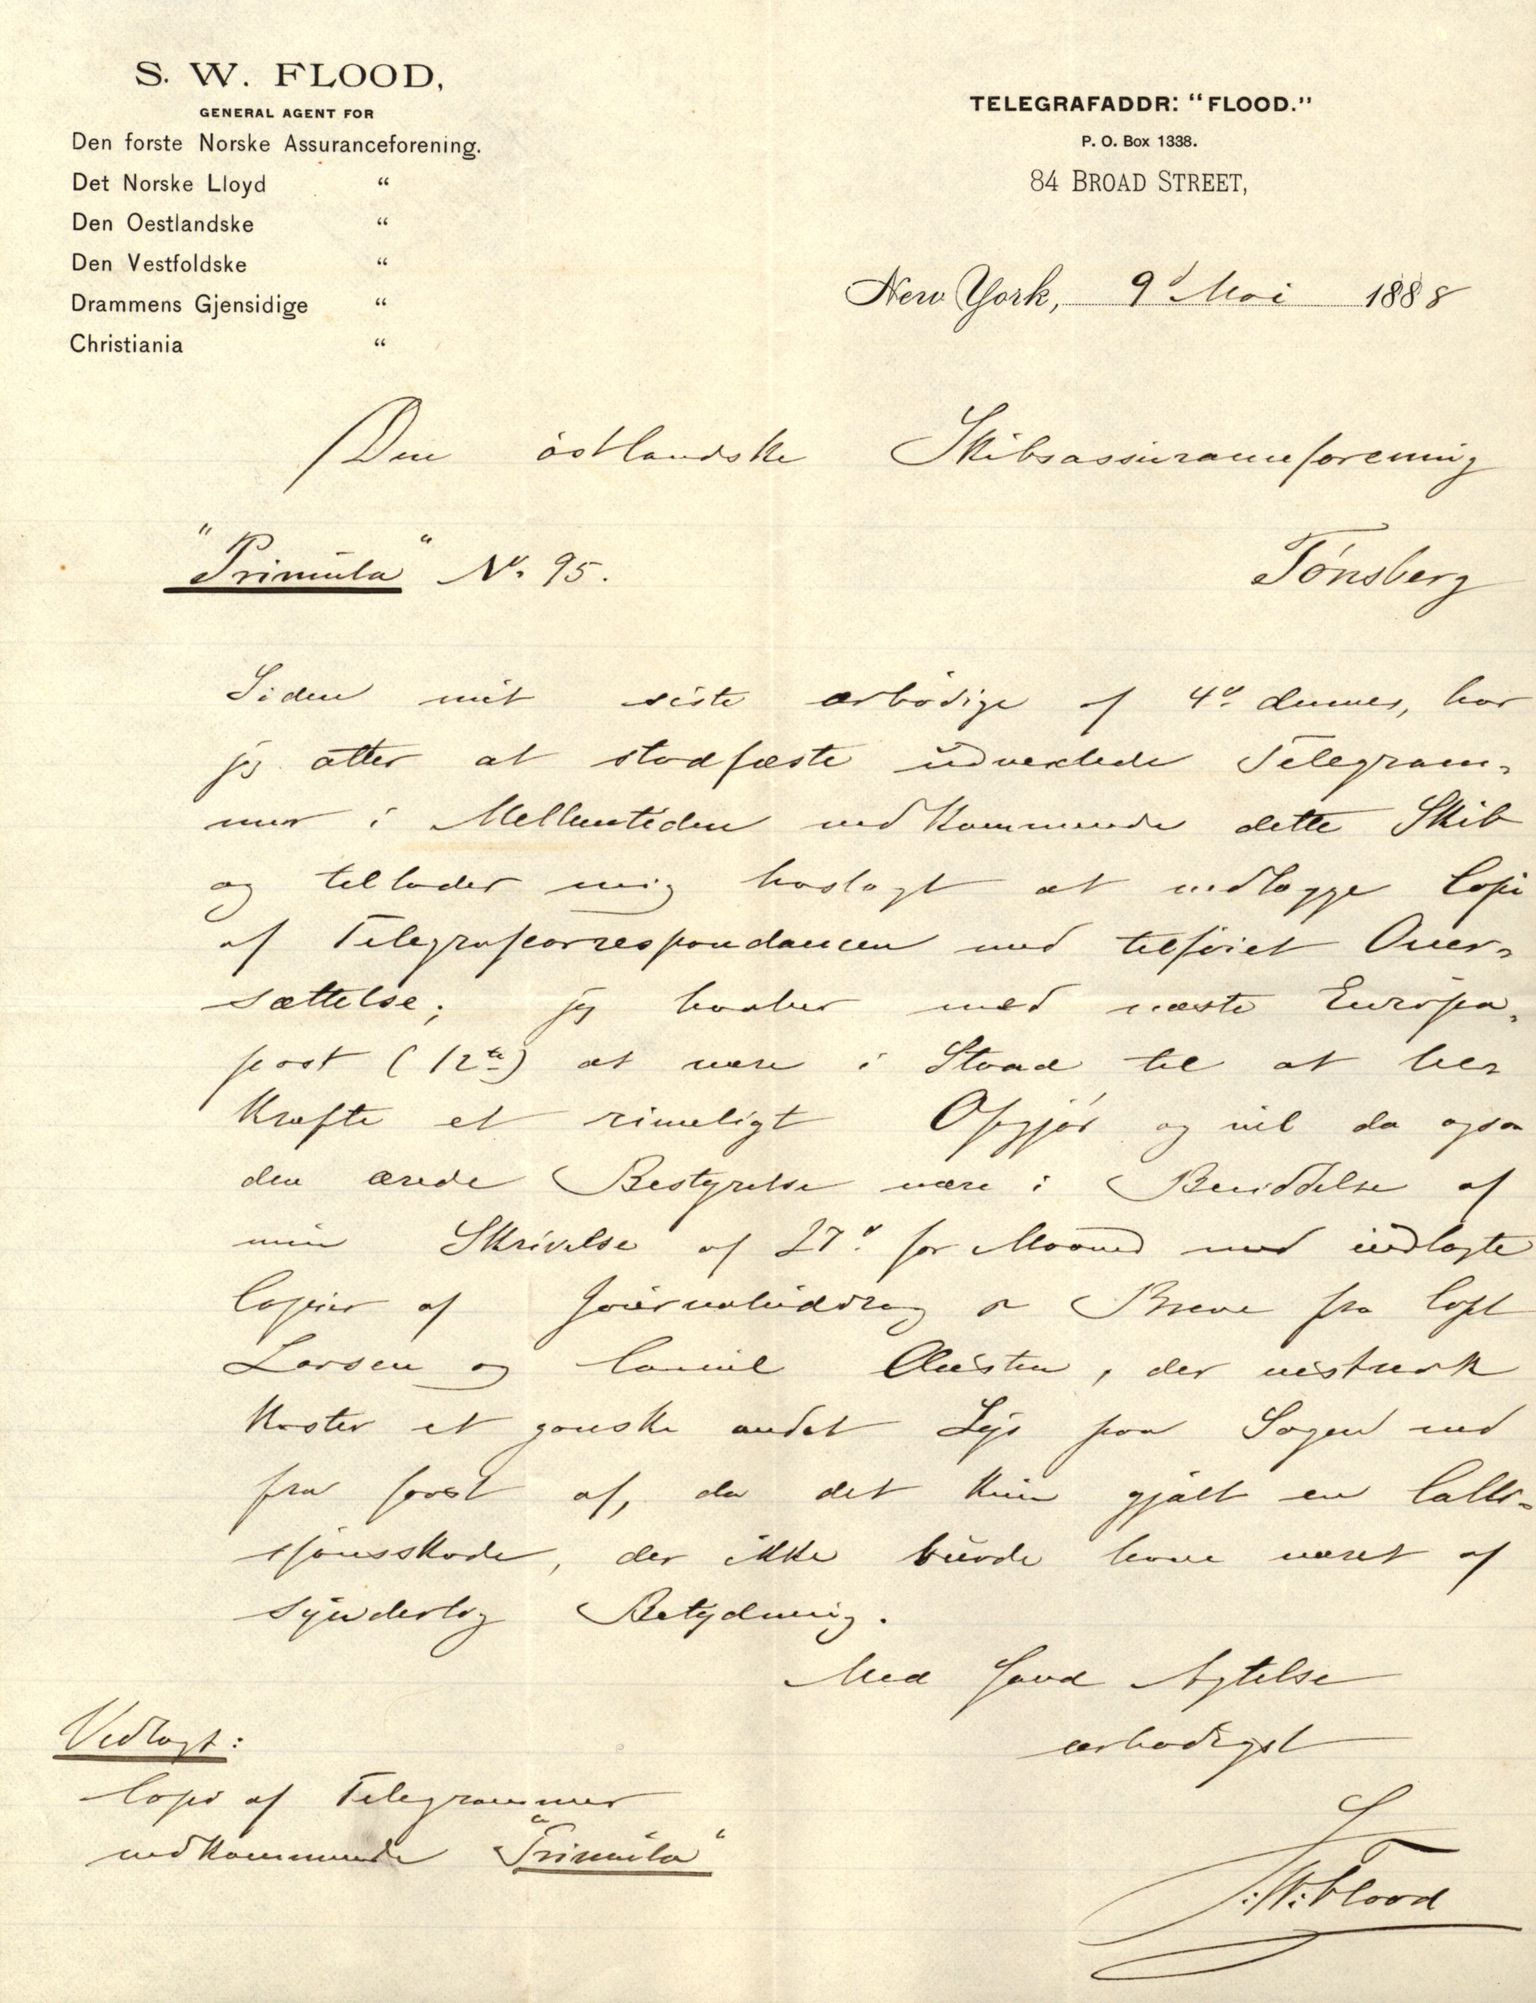 S. W. FLOOD,
GENERAL AGENT FOR
Den forste Norske Assuranceforening.
Det Norske Lloyd "
Den Oestlandske "
Den Vestfoldske "
Drammens Gjensidige "
Christiania "
TELEGRAFADDR: "FLOOD."
P. O. Box 1338.
84 BROAD STREET,
New York, 9d Mai 1888
Den östlandske Skibsassuranceforening
"Primula" No. 95.
Tönsberg
Siden mit siste ærbödige af 4d dennes, har
jeg atter at stadfæste udvexlede Telegram-
mer i Mellemtiden vedkommende dette Skib
og tillader mig hoslagt at vedlægge Copi
af Telegrafcorrespondancen med tilföiet Over-
sættelse; jeg haaber med næste Europa-
post (12te) at være i Stand til at be-
kræfte et rimeligt Opgjör og vil da ogsaa
den ærede Bestyrelse være i Besiddelse af
min Skrivelse af 27d for Maaned med indlagte
Copier af Journaluddrag & Breve fra Capt
Larsen og Consul, der uestærk
kaster et ganske andet Lys paa Sagen end
fra först af, da det kun gjaldt en Colli-
sjonsskade, der ikke burde have været af
synderlig Betydning.
Med Goud Agtelse
ærbödigst
S. W. Flood
Vedlagt:
Copi af Telegrammer
vedkommende "Primula"